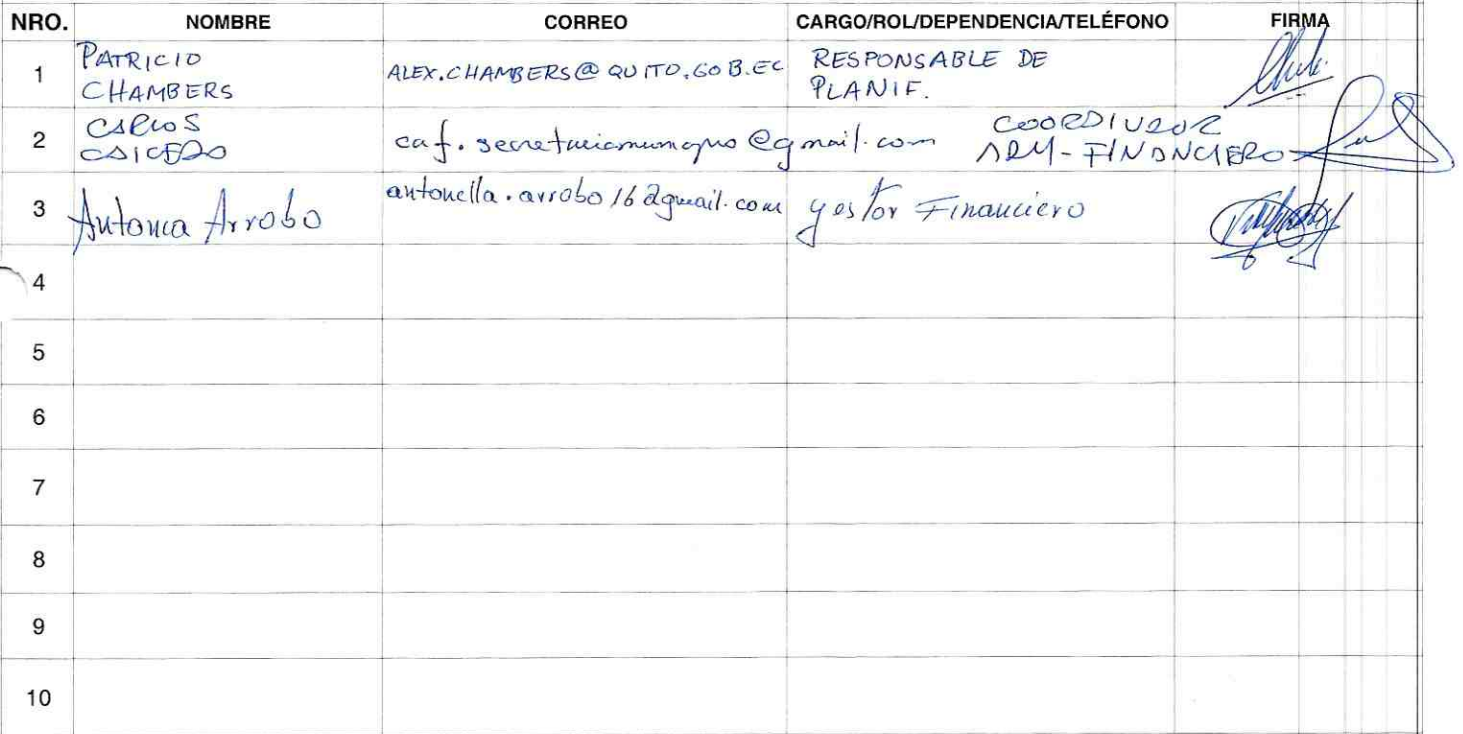 NRO. NOMBRE CORREO CARGO/ROL/DEPENDENCIA/TELÉFONO FIRMA
1 PATRICIO CHAMBERS ALEX.CHAMBERS@QUITO.GOB.EC RESPONSABLE DE PLANIF.
2 CARLOS caf. @gmail.com COORDINADOR ADM-FINANCIERO
3 Antonia Arrobo antonella.arrobo16@gmail.com gestor Financiero
4
5
6
7
8
9
10